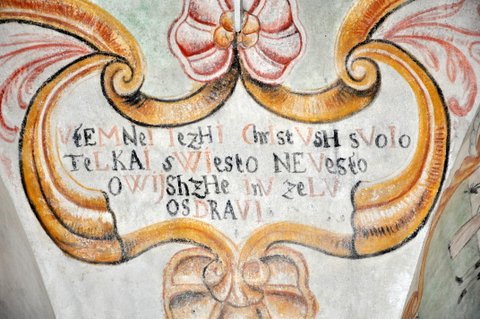 VtEMNEI IEzHI ChrIstVsH sVoIo
TELKAI sWIEsto NEVEsto
OWIJShzHE INV zELV
OSDRAVI